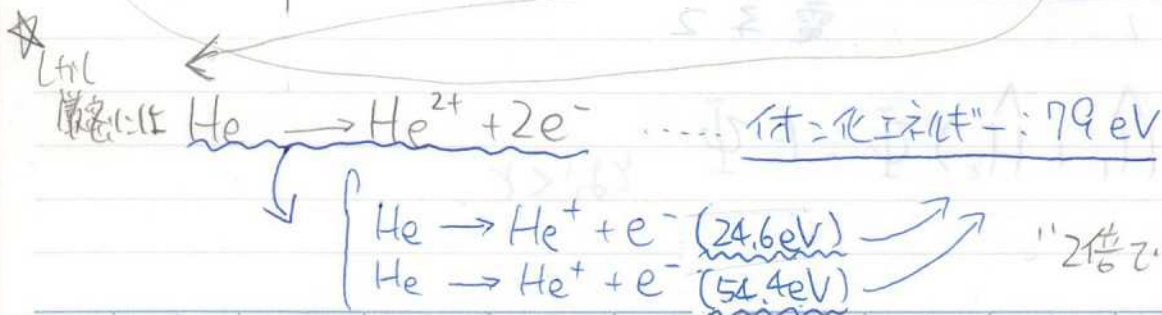 ☆
しかし
厳密には He → He²⁺ + 2e⁻ ..... イオン化エネルギー: 79 eV
He → He⁺ + e⁻ (24.6eV)
He → He⁺ + e⁻ (54.4eV)
"2倍で